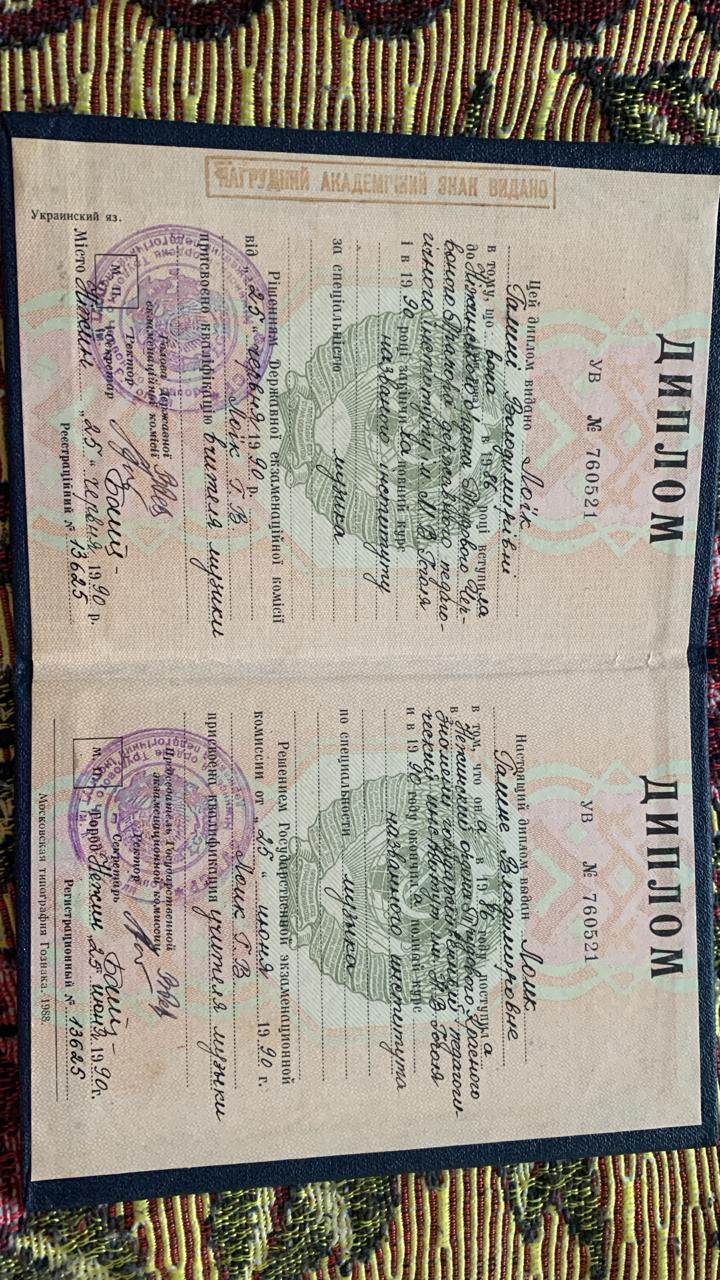 НАГРУДНИЙ АКАДЕМІЧНИЙ ЗНАК ВИДАНО
ДИПЛОМ
УВ № 760521
Цей диплом видано Лоїк
Галині Володимирівні
в тому, що вона в 1986 році вступила
до Ніжинського ордена Трудового Чер-
воного Прапора державного педаго-
гічного інституту ім. М. В. Гоголя
і в 1990 році закінчила повний курс
названого інституту
за спеціальністю музика
Рішенням Державної екзаменаційної комісії
від „25“ червня 1990 р.
Лоїк Г. В.
присвоєно кваліфікацію вчителя музики
Голова Державної
екзаменаційної комісії
Ректор
М. П. Секретар
Місто Ніжин „25“ червня 1990 р.
Реєстраційний № 13625
Украинский яз.
ДИПЛОМ
УВ № 760521
Настоящий диплом выдан Лоик
Галине Владимировне
в том, что она в 1986 году поступила
в Нежинский ордена Трудового Красного
Знамени государственный педагоги-
ческий институт им. Н. В. Гоголя
и в 1990 году окончила полный курс
названного института
по специальности музыка
Решением Государственной экзаменационной
комиссии от „25“ июня 1990 г.
Лоик Г. В.
присвоена квалификация учителя музыки
Председатель Государственной
экзаменационной комиссии
Ректор
М. П. Секретарь
Город Нежин 25 июня 1990 г.
Регистрационный № 13625
Московская типография Гознака. 1988.